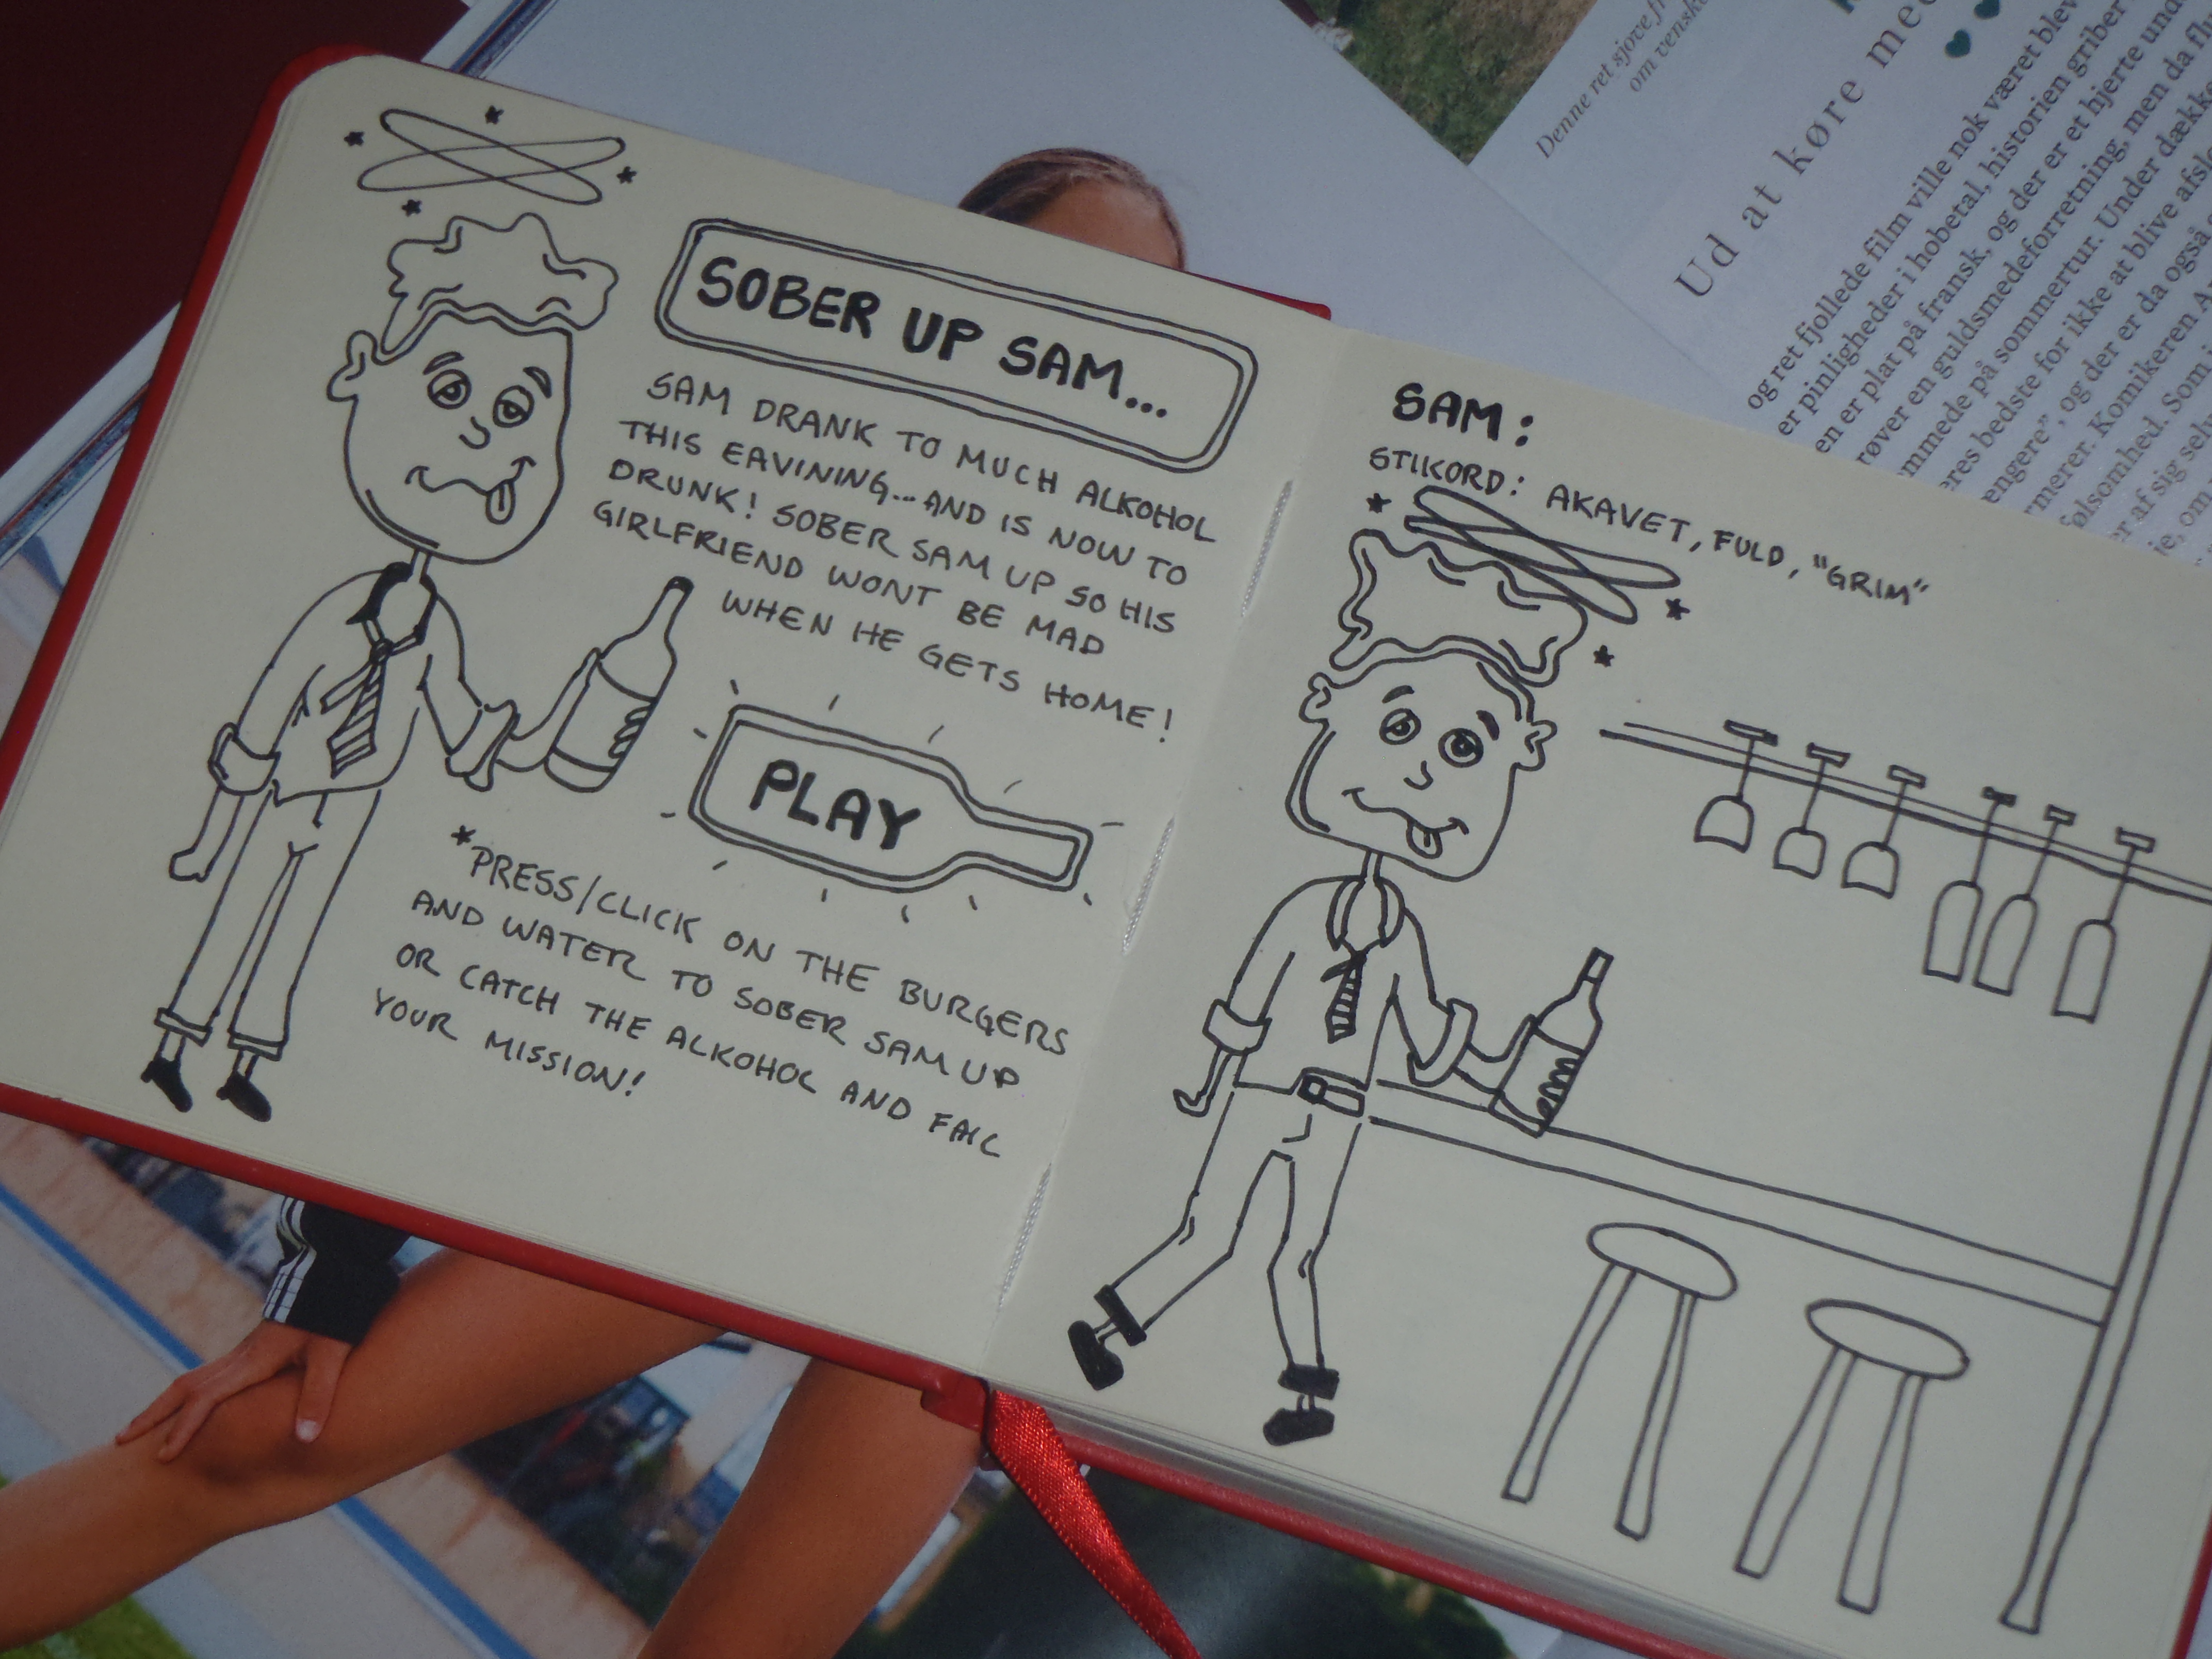 SOBER UP SAM...
SAM DRANK TO MUCH ALKOHOL
THIS EAVINING...AND IS NOW TO
DRUNK! SOBER SAM UP SO HIS
GIRLFRIEND WONT BE MAD
WHEN HE GETS HOME!
PLAY
*PRESS/CLICK ON THE BURGERS
AND WATER TO SOBER SAM UP
OR CATCH THE ALKOHOL AND FAIL
YOUR MISSION!
SAM:
STIKORD: AKAVET, FULD, "GRIM"
Denne ret sjove
om venska
Ud at køre med
og ret fjollede film ville nok været blev
er pinligheder i hobetal, historien griber
en er plat på fransk, og der er et hjerte und
røver en guldsmedeforretning, men da fl
mmede på sommertur. Under dække
eres bedste for ikke at blive afslø
engere", og der er da også
rmerer. Komikeren A
ølsomhed. Som i
er af sig selv
je, om